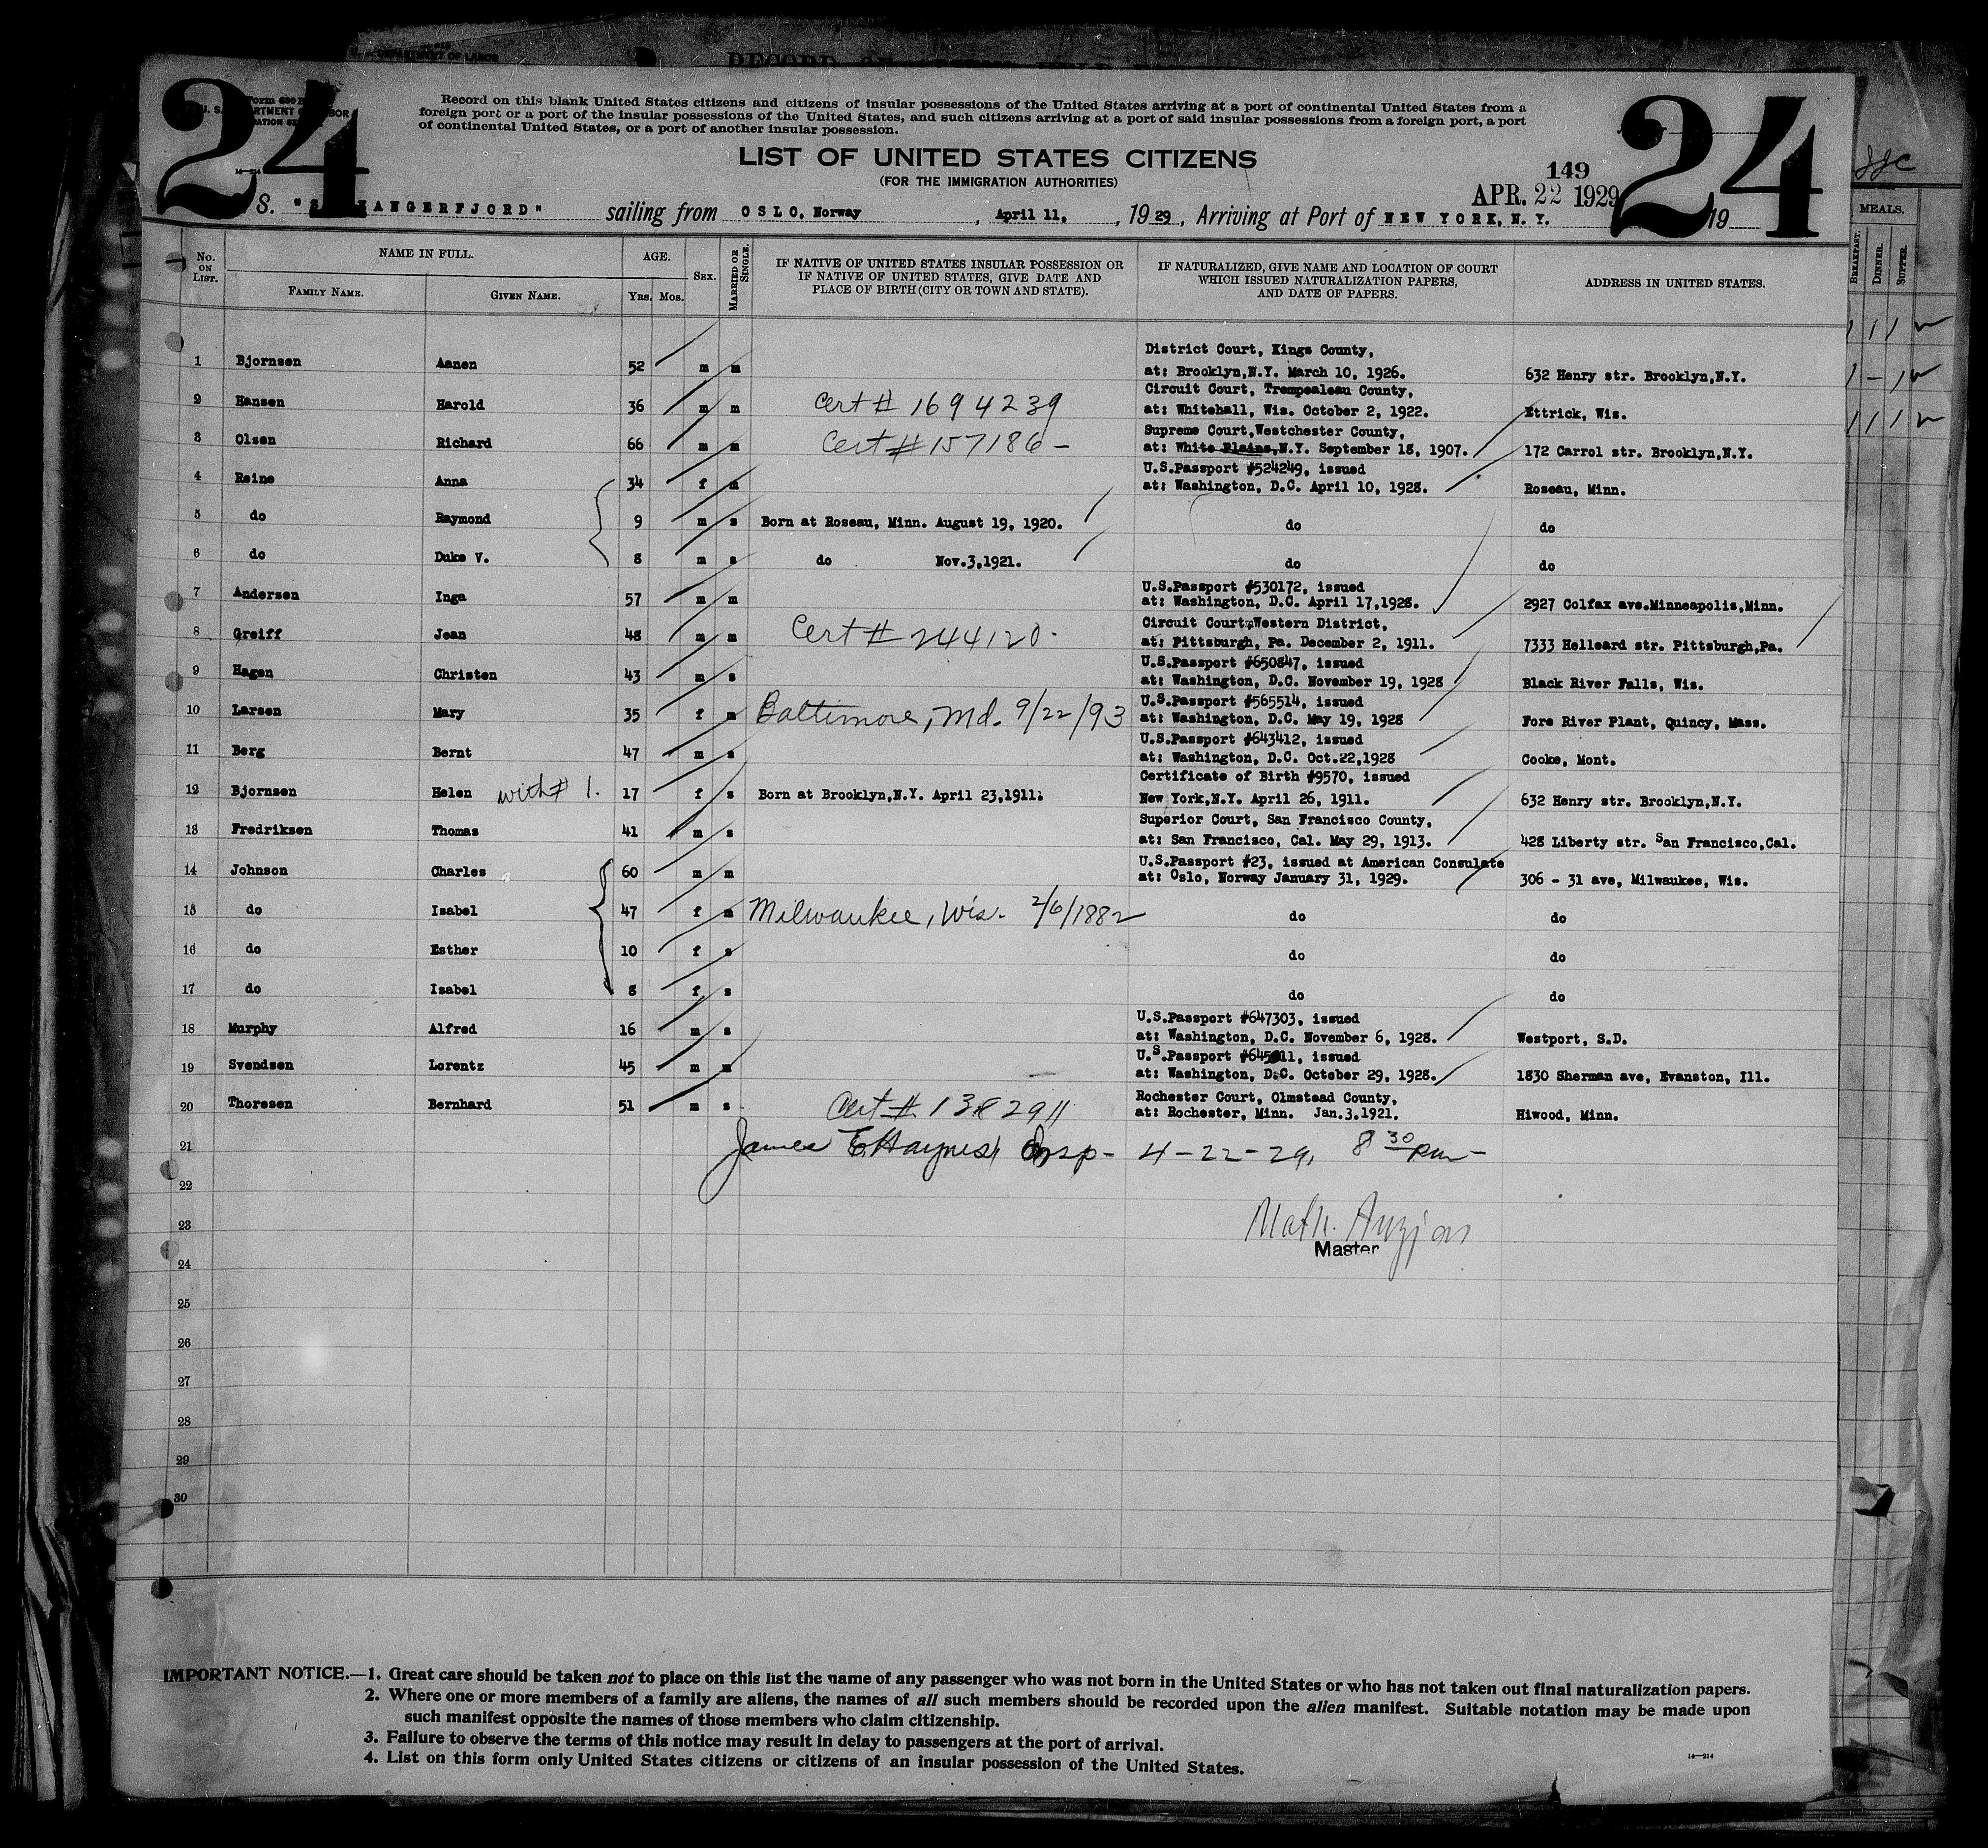 DEPARTMENT OF LABOR
24
24
Record on this blank United States citizens and citizens of insular possessions of the United States arriving at a port of continental United States from a
foreign port or a port of the insular possessions of the United States, and such citizens arriving at a port of said insular possessions from a foreign port, a port
of continental United States, or a port of another insular possession.
LIST OF UNITED STATES CITIZENS
(FOR THE IMMIGRATION AUTHORITIES)
149
APR. 22 1929
S. ANGERFJORD" sailing from OSLO, Norway, April 11, 1929, Arriving at Port of NEW YORK, N. Y. 19
MEALS.
BREAKFAST. DINNER. SUPPER.
No. ON LIST. NAME IN FULL. FAMILY NAME. GIVEN NAME. AGE. YRS. MOS. SEX. MARRIED OR SINGLE. IF NATIVE OF UNITED STATES INSULAR POSSESSION OR IF NATIVE OF UNITED STATES, GIVE DATE AND PLACE OF BIRTH (CITY OR TOWN AND STATE). IF NATURALIZED, GIVE NAME AND LOCATION OF COURT WHICH ISSUED NATURALIZATION PAPERS, AND DATE OF PAPERS. ADDRESS IN UNITED STATES.
1 Bjornsen Aanen 52 m m District Court, Kings County, at: Brooklyn,N.Y. March 10, 1926. 632 Henry str. Brooklyn,N.Y.
2 Hansen Harold 36 m m Cert # 1694239 Circuit Court, Trempealeau County, at: Whitehall, Wis. October 2, 1922. Ettrick, Wis.
3 Olsen Richard 66 m m Cert # 157186 - Supreme Court,Westchester County, at: White Plains,N.Y. September 18, 1907. 172 Carrol str. Brooklyn,N.Y.
4 Reine Anna 34 f m U.S.Passport #524249, issued at: Washington, D.C. April 10, 1928. Roseau, Minn.
5 do Raymond 9 m s Born at Roseau, Minn. August 19, 1920. do do
6 do Duke V. 8 m s do Nov.3,1921. do do
7 Andersen Inga 57 m m U.S.Passport #530172, issued at: Washington, D.C. April 17,1928. 2927 Colfax ave.Minneapolis,Minn.
8 Greiff Jean 48 m m Cert # 244120. Circuit Court,Western District, at: Pittsburgh, Pa. December 2, 1911. 7333 Helleard str. Pittsburgh,Pa.
9 Hagen Christen 43 m s U.S.Passport #650847, issued at: Washington, D.C. November 19, 1928 Black River Falls, Wis.
10 Larsen Mary 35 f m Baltimore, Md. 9/22/93 U.S.Passport #565514, issued at: Washington, D.C. May 19, 1928 Fore River Plant, Quincy, Mass.
11 Berg Bernt 47 m s U.S.Passport #643412, issued at: Washington, D.C. Oct.22,1928 Cooke, Mont.
12 Bjornsen Helen with # 1. 17 f s Born at Brooklyn,N.Y. April 23,1911. Certificate of Birth #9570, issued New York,N.Y. April 26, 1911. 632 Henry str. Brooklyn,N.Y.
13 Fredriksen Thomas 41 m s Superior Court, San Francisco County, at: San Francisco, Cal. May 29, 1913. 428 Liberty str. San Francisco,Cal.
14 Johnson Charles 60 m m U.S.Passport #23, issued at American Consulate at: Oslo, Norway January 31, 1929. 306 - 31 ave, Milwaukee, Wis.
15 do Isabel 47 f m Milwaukee, Wis. 2/6/1882 do do
16 do Esther 10 f s do do
17 do Isabel 8 f s do do
18 Murphy Alfred 16 m s U.S.Passport #647303, issued at: Washington, D.C. November 6, 1928. Westport, S.D.
19 Svendsen Lorentz 45 m m U.S.Passport issued at: Washington, D.C. October 29, 1928. 1830 Sherman ave, Evanston, Ill.
20 Thoresen Bernhard 51 m s Cert # 1382911 Rochester Court, Olmstead County, at: Rochester, Minn. Jan.3.1921. Hiwood, Minn.
21 James E. Haynes, Insp- 4-22-29, 8 30 pm-
22
23
Master
24
25
26
27
28
29
30
IMPORTANT NOTICE.—1. Great care should be taken not to place on this list the name of any passenger who was not born in the United States or who has not taken out final naturalization papers.
2. Where one or more members of a family are aliens, the names of all such members should be recorded upon the alien manifest. Suitable notation may be made upon
such manifest opposite the names of those members who claim citizenship.
3. Failure to observe the terms of this notice may result in delay to passengers at the port of arrival.
4. List on this form only United States citizens or citizens of an insular possession of the United States.
14—214